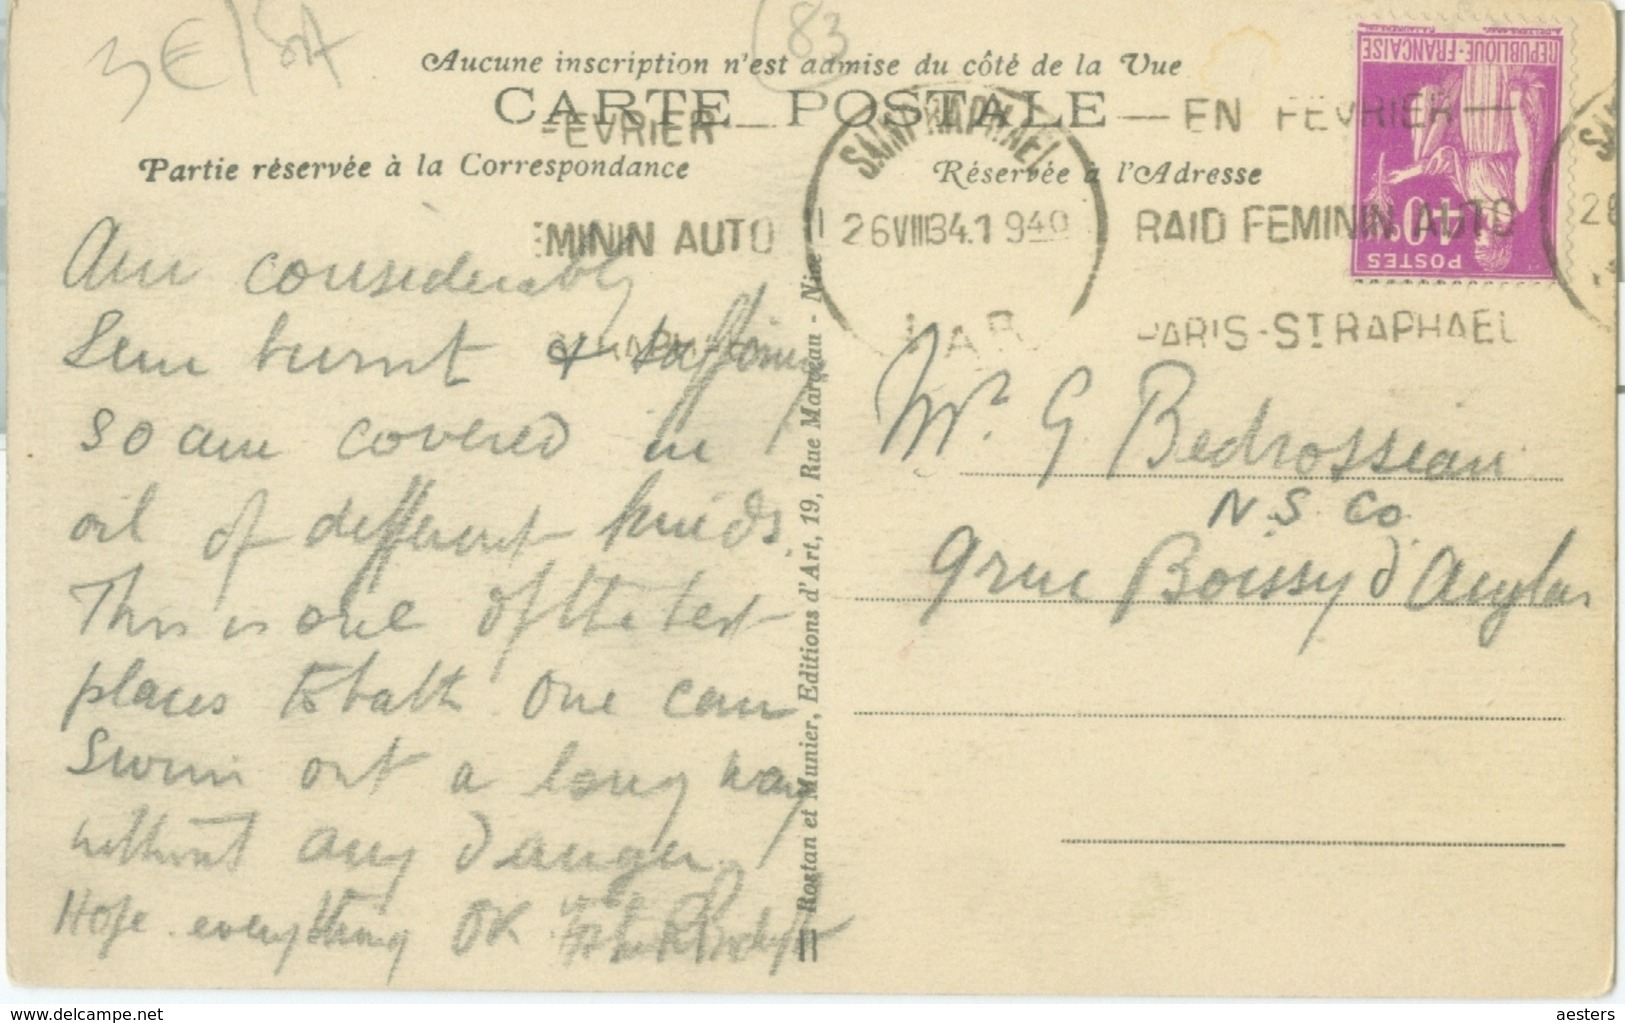 3€/SA
(83
Aucune inscription n'est admise du côté de la Vue
CARTE POSTALE
Partie réservée à la Correspondance
Réservée à l'Adresse
EVRIER —
MININ AUTO
SAINT RAPHAEL
26 VIII 34.1 940
VAR
— EN FEVRIER —
RAID FEMININ AUTO
PARIS-ST RAPHAEL
REPUBLIQUE-FRANÇAISE
40c
POSTES
Am considerably
Sun burnt &
so am covered in
oil of different kinds.
This is one of the best
places to bath one can
Swim out a long way
without any danger
Hope everything OK
Rostan et Munier, Editions d'Art, 19, Rue Marceau - Nice
Mr. G Bedrosseian
N.S. Co
9 rue Boissy d'Anglas
aesters